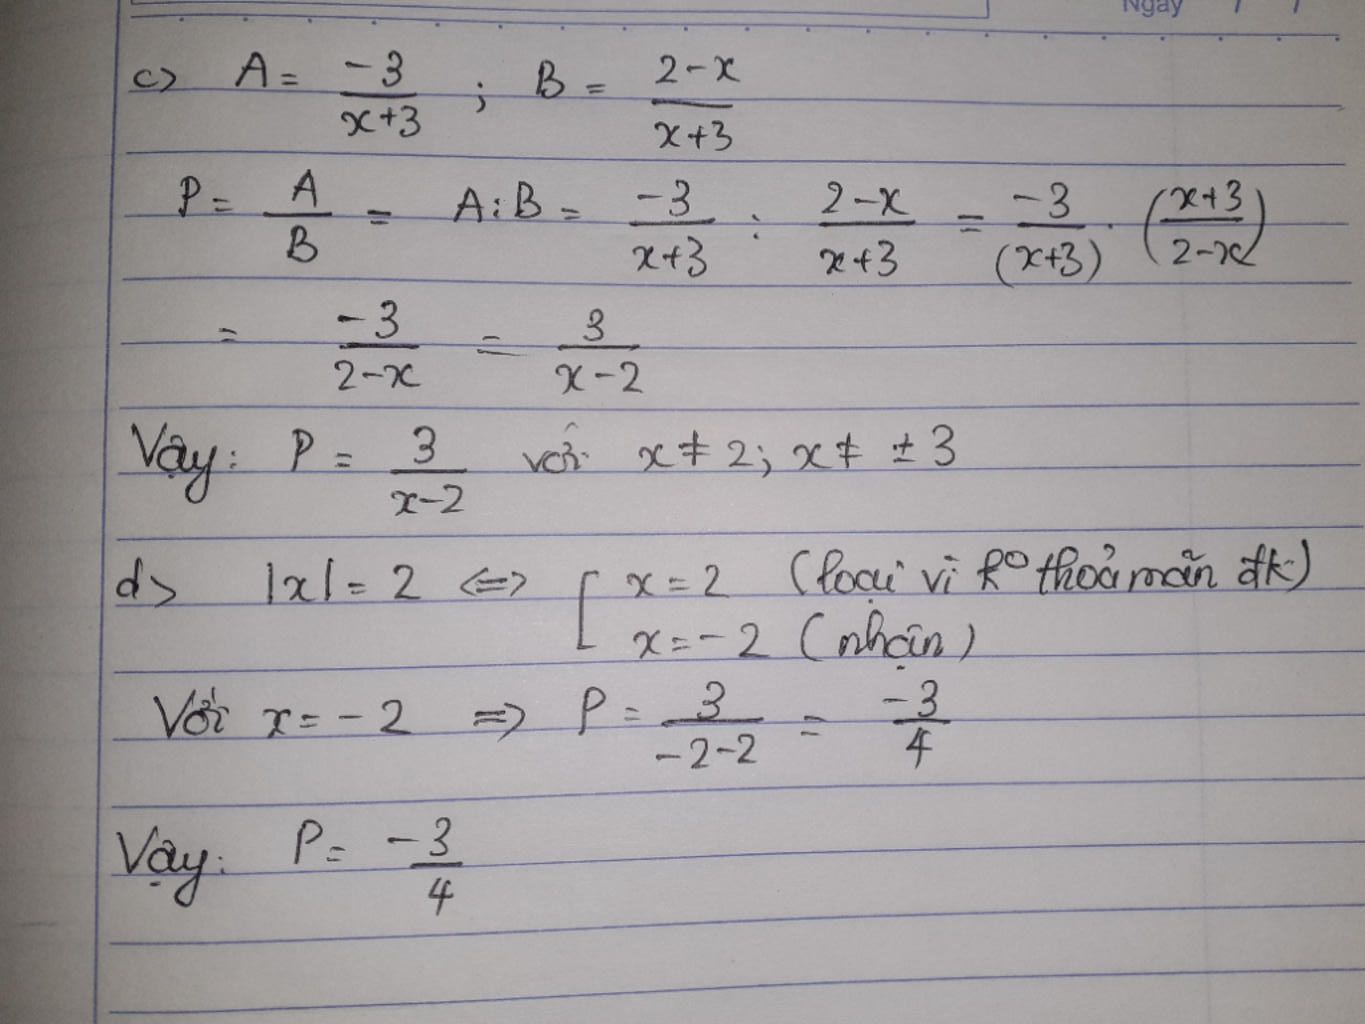 Ngày / /
c) A = -3/(x+3) ; B = (2-x)/(x+3)
P = A/B = A:B = -3/(x+3) : (2-x)/(x+3) = -3/(x+3) · ((x+3)/(2-x))
= -3/(2-x) = 3/(x-2)
Vậy: P = 3/(x-2) với x ≠ 2; x ≠ ±3
d) |x| = 2 <=> [ x = 2 (loại vì k° thoả mãn đk)
x = -2 (nhận)
Với x = -2 => P = 3/(-2-2) = -3/4
Vậy: P = -3/4